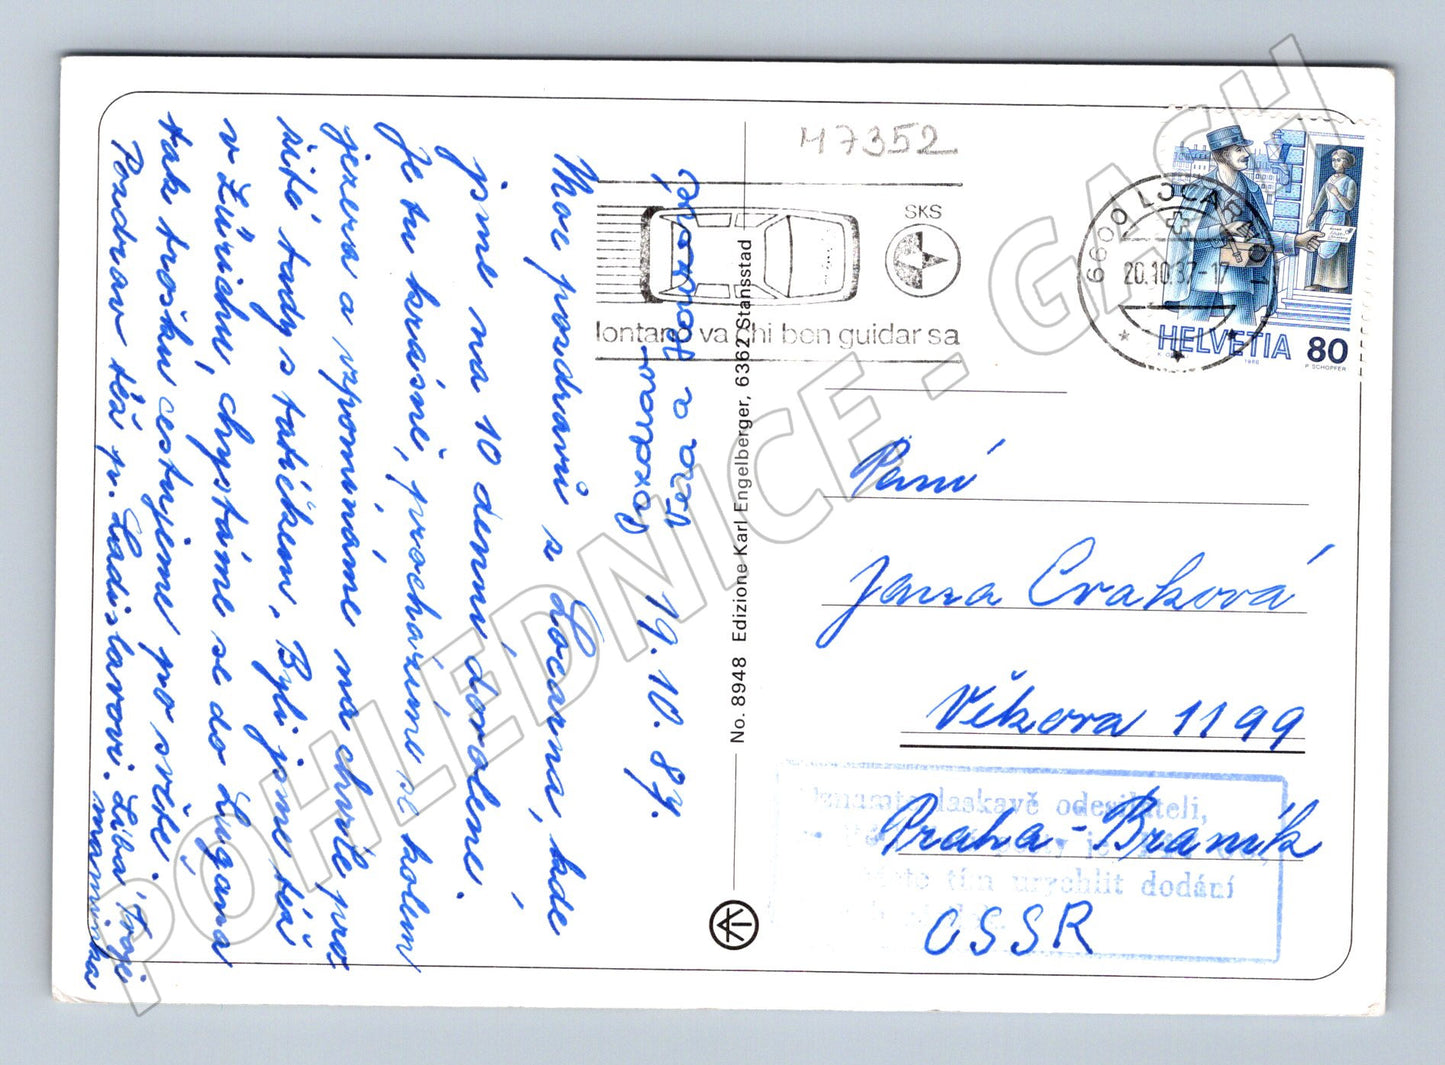 Moc pozdravů z Locarna, kde
jsme na 10 denní dovolené.
Je tu krásně, procházíme se kolem
jezera a vzpomínáme na chvíle pro
žité tady s tatíčkem. Byli jsme též
v Zürichu, chystáme se do Lugana
tak trošku cestujeme po světě.
Pozdrav též p. Ladislavovi. Líba Tvoje
maminka
19.10.87.
Pozdravují
Věra a
47352
SKS
lontano va chi ben guidar sa
6600 LOCARNO 1
20.10.87-17
HELVETIA 80
P. SCHOPFER
No. 8948 Edizione Karl Engelberger, 6362 Stansstad
Paní
Jana Cvaková
Věkova 1199
Praha-Braník
ČSSR
laskavě odesilateli,
tím urychlit dodání
POHLEDNICE - GASH